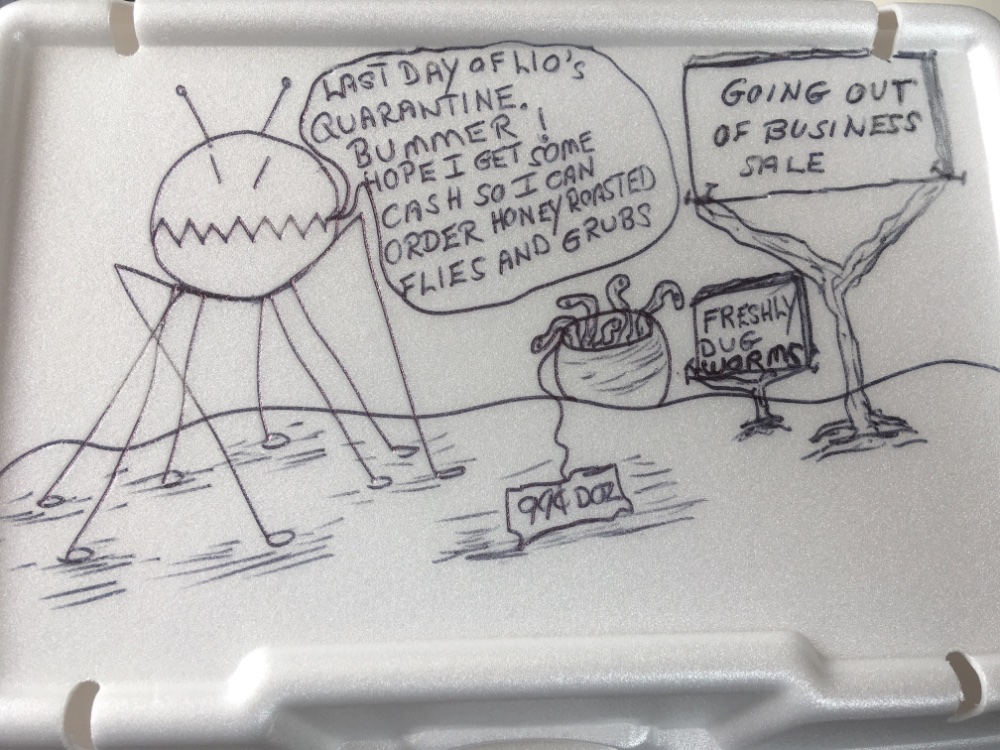 LAST DAY OF LIO's
QUARANTINE.
BUMMER!
HOPE I GET SOME
CASH SO I CAN
ORDER HONEY ROASTED
FLIES AND GRUBS
GOING OUT
OF BUSINESS
SALE
FRESHLY
DUG
WORMS
99¢ DOZ